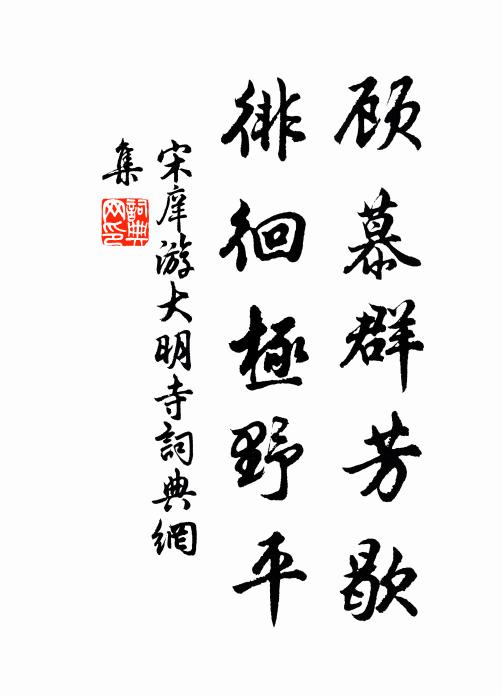 顾慕群芳歇
徘徊極野平
宋庠游大明寺詞典網
集
詞典
网印